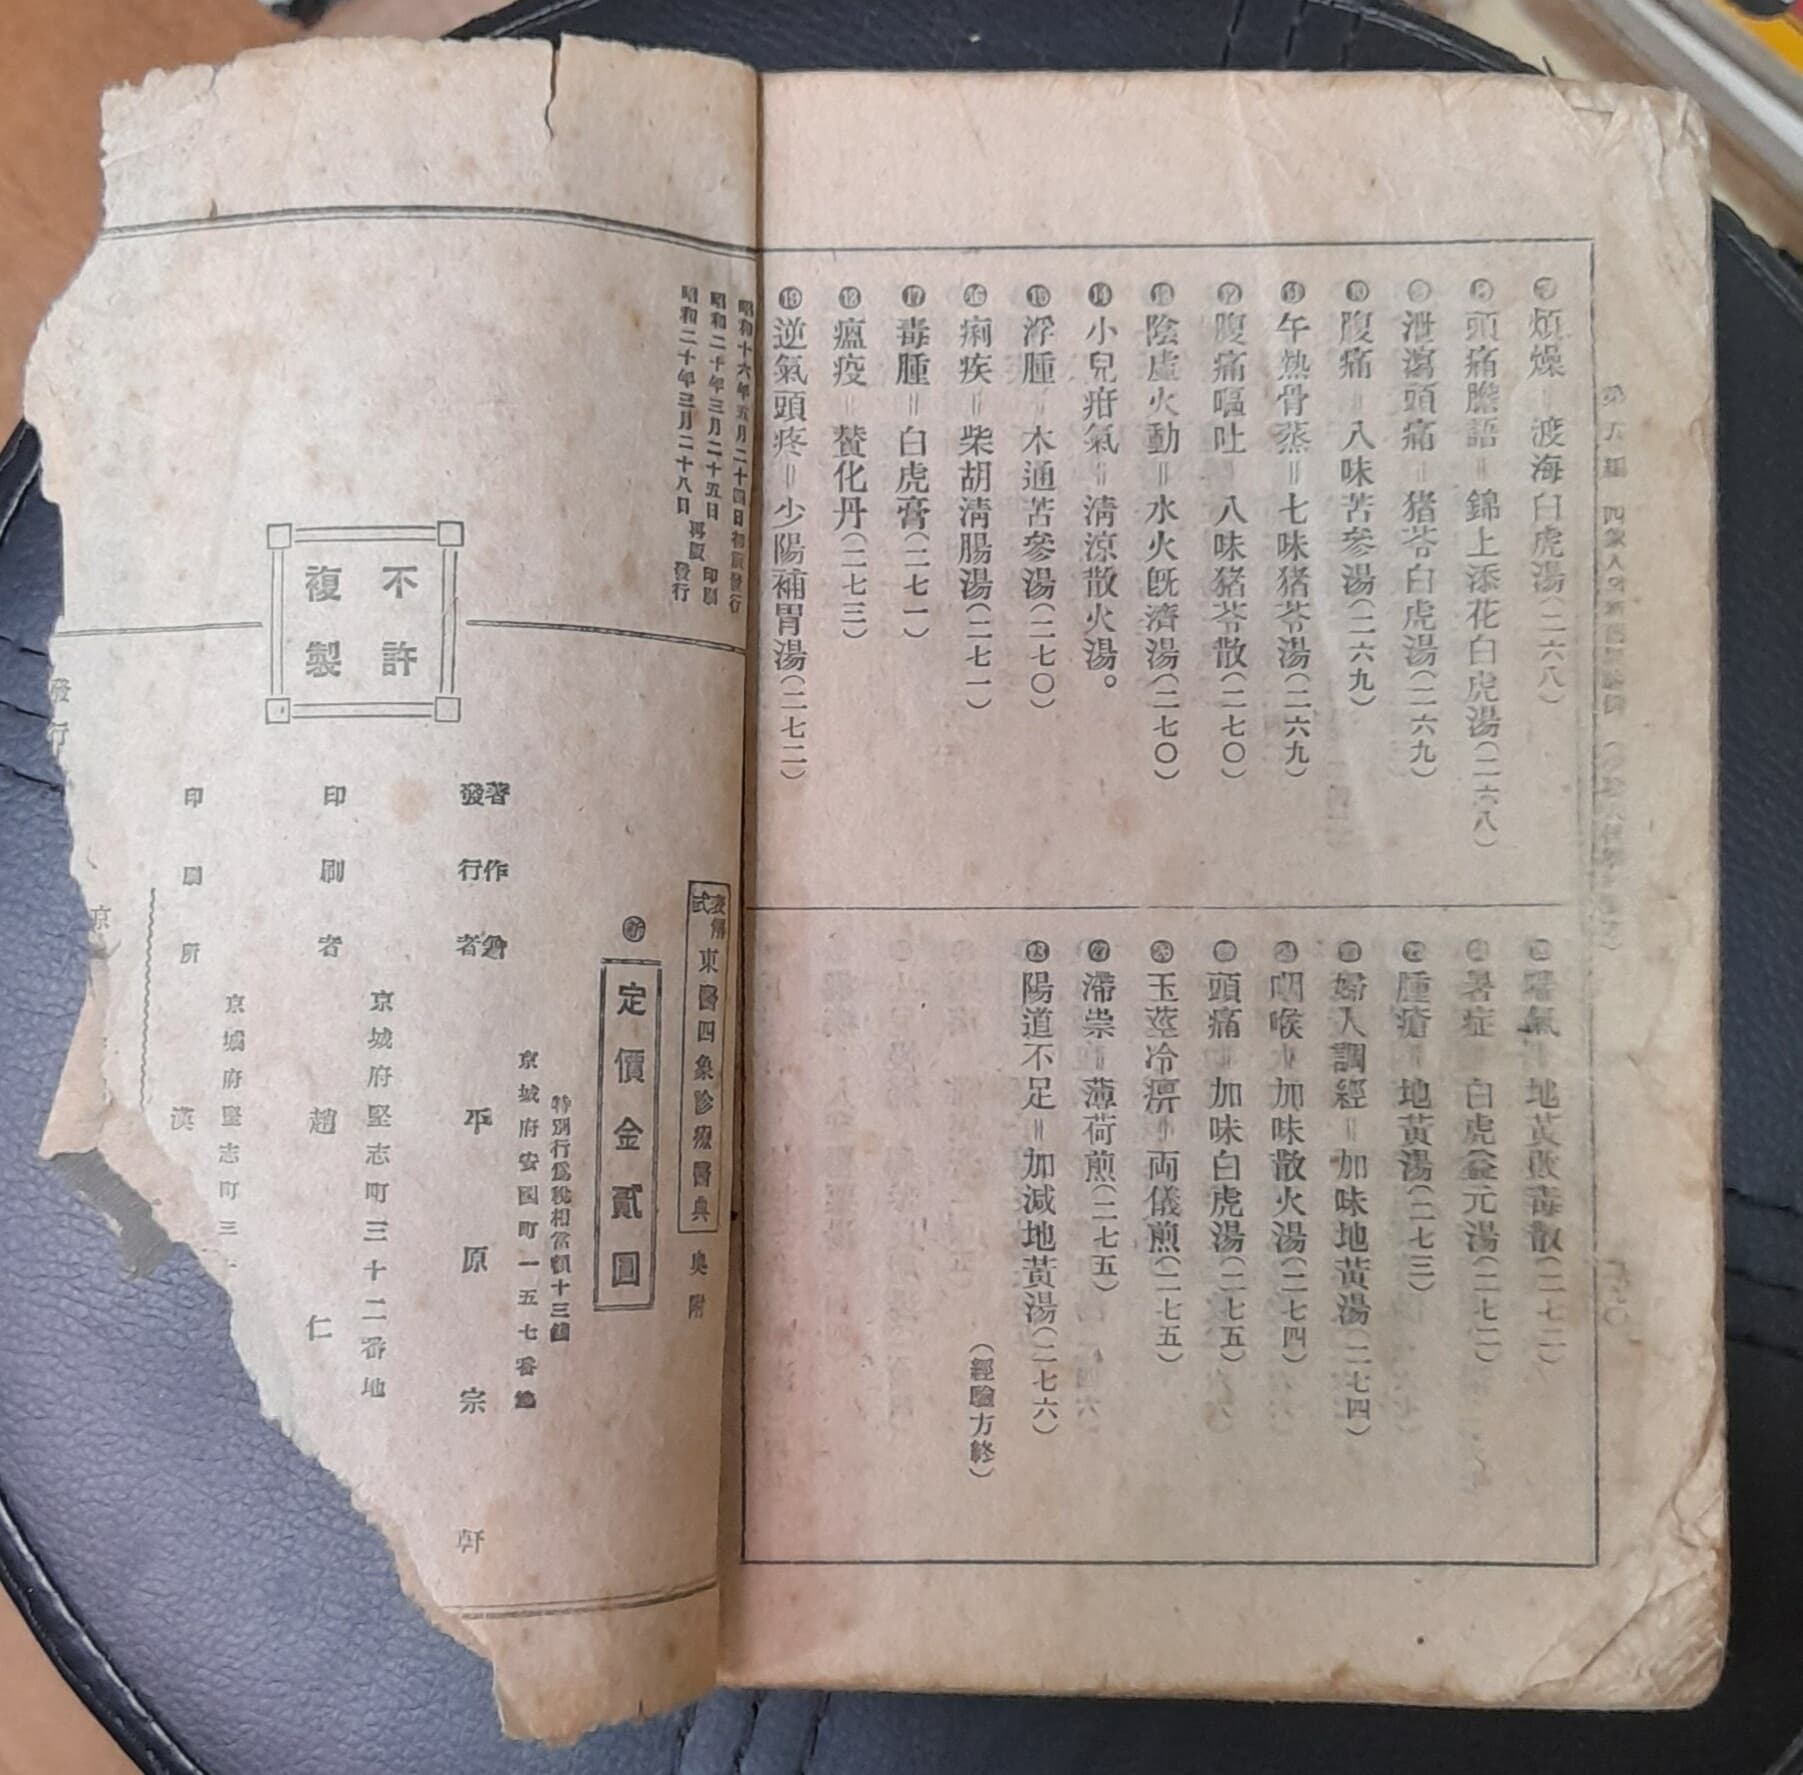 煩燥＝渡海白虎湯(二六八)
頭痛膽語＝錦上添花白虎湯(二六八)
泄瀉頭痛＝猪苓白虎湯(二六九)
❿腹痛＝八味苦參湯(二六九)
⓫午熱骨蒸＝七味猪苓湯(二六九)
⓬腹痛嘔吐＝八味猪苓散(二七〇)
⓭陰虛火動＝水火旣濟湯(二七〇)
⓮小兒疳氣＝淸涼散火湯。
⓯浮腫＝木通苦參湯(二七〇)
⓰痢疾＝柴胡淸腸湯(二七一)
⓱毒腫＝白虎膏(二七一)
⓲瘟疫＝贊化丹(二七三)
⓳逆氣頭疼＝少陽補胃湯(二七二)
氣＝地黃敗毒散(二七二)
暑症＝白虎益元湯(二七二)
腫瘡＝地黃湯(二七三)
婦人調經＝加味地黃湯(二七四)
咽喉＝加味散火湯(二七四)
頭痛＝加味白虎湯(二七五)
玉莖冷痹＝両儀煎(二七五)
滯祟＝薄荷煎(二七五)
陽道不足＝加減地黃湯(二七六)
(經驗方終)
昭和十六年五月二十四日初版發行
昭和二十年三月二十五日 再版 印刷
昭和二十年三月二十八日 發行
東醫四象診療醫典 奥附
定價金貳圓
特別行爲稅相當額十三錢
京城府安國町一五七番地
著作兼
發行者 平原宗軒
京城府堅志町三十二番地
印刷者 趙仁
京城府堅志町三十
印刷所 漢
不許
複製
發行
京